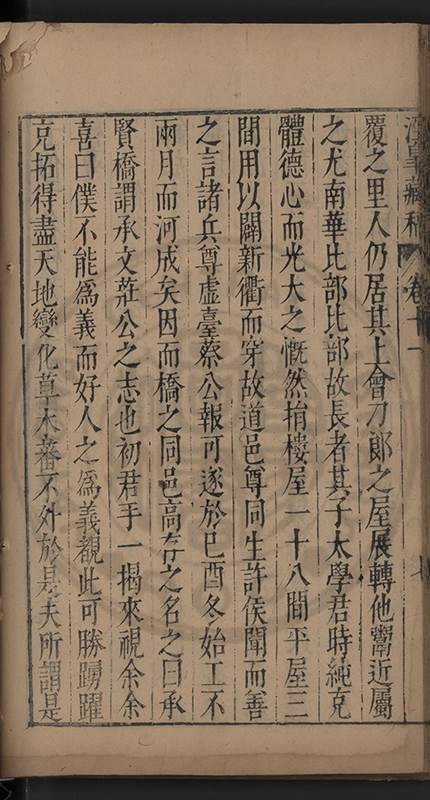 藏稿 卷十一
覆之里人仍居其上會刀郞之屋展轉他鬻近屬
之尤南華比部比部故長者其子太學君時純克
體德心而光大之慨然捐樓屋一十八間平屋三
間用以闢新衢而穿故道邑尊同生許侯聞而善
之言諸兵尊虛臺蔡公報可遂於已酉冬始工不
兩月而河成矣因而橋之同邑高
之名之曰承
賢橋謂承文莊公之志也初君手一揭來視余余
喜曰僕不能爲義而好人之爲義覩此可勝踴躍
克拓得盡天地變化草木蕃不外於是夫所謂是